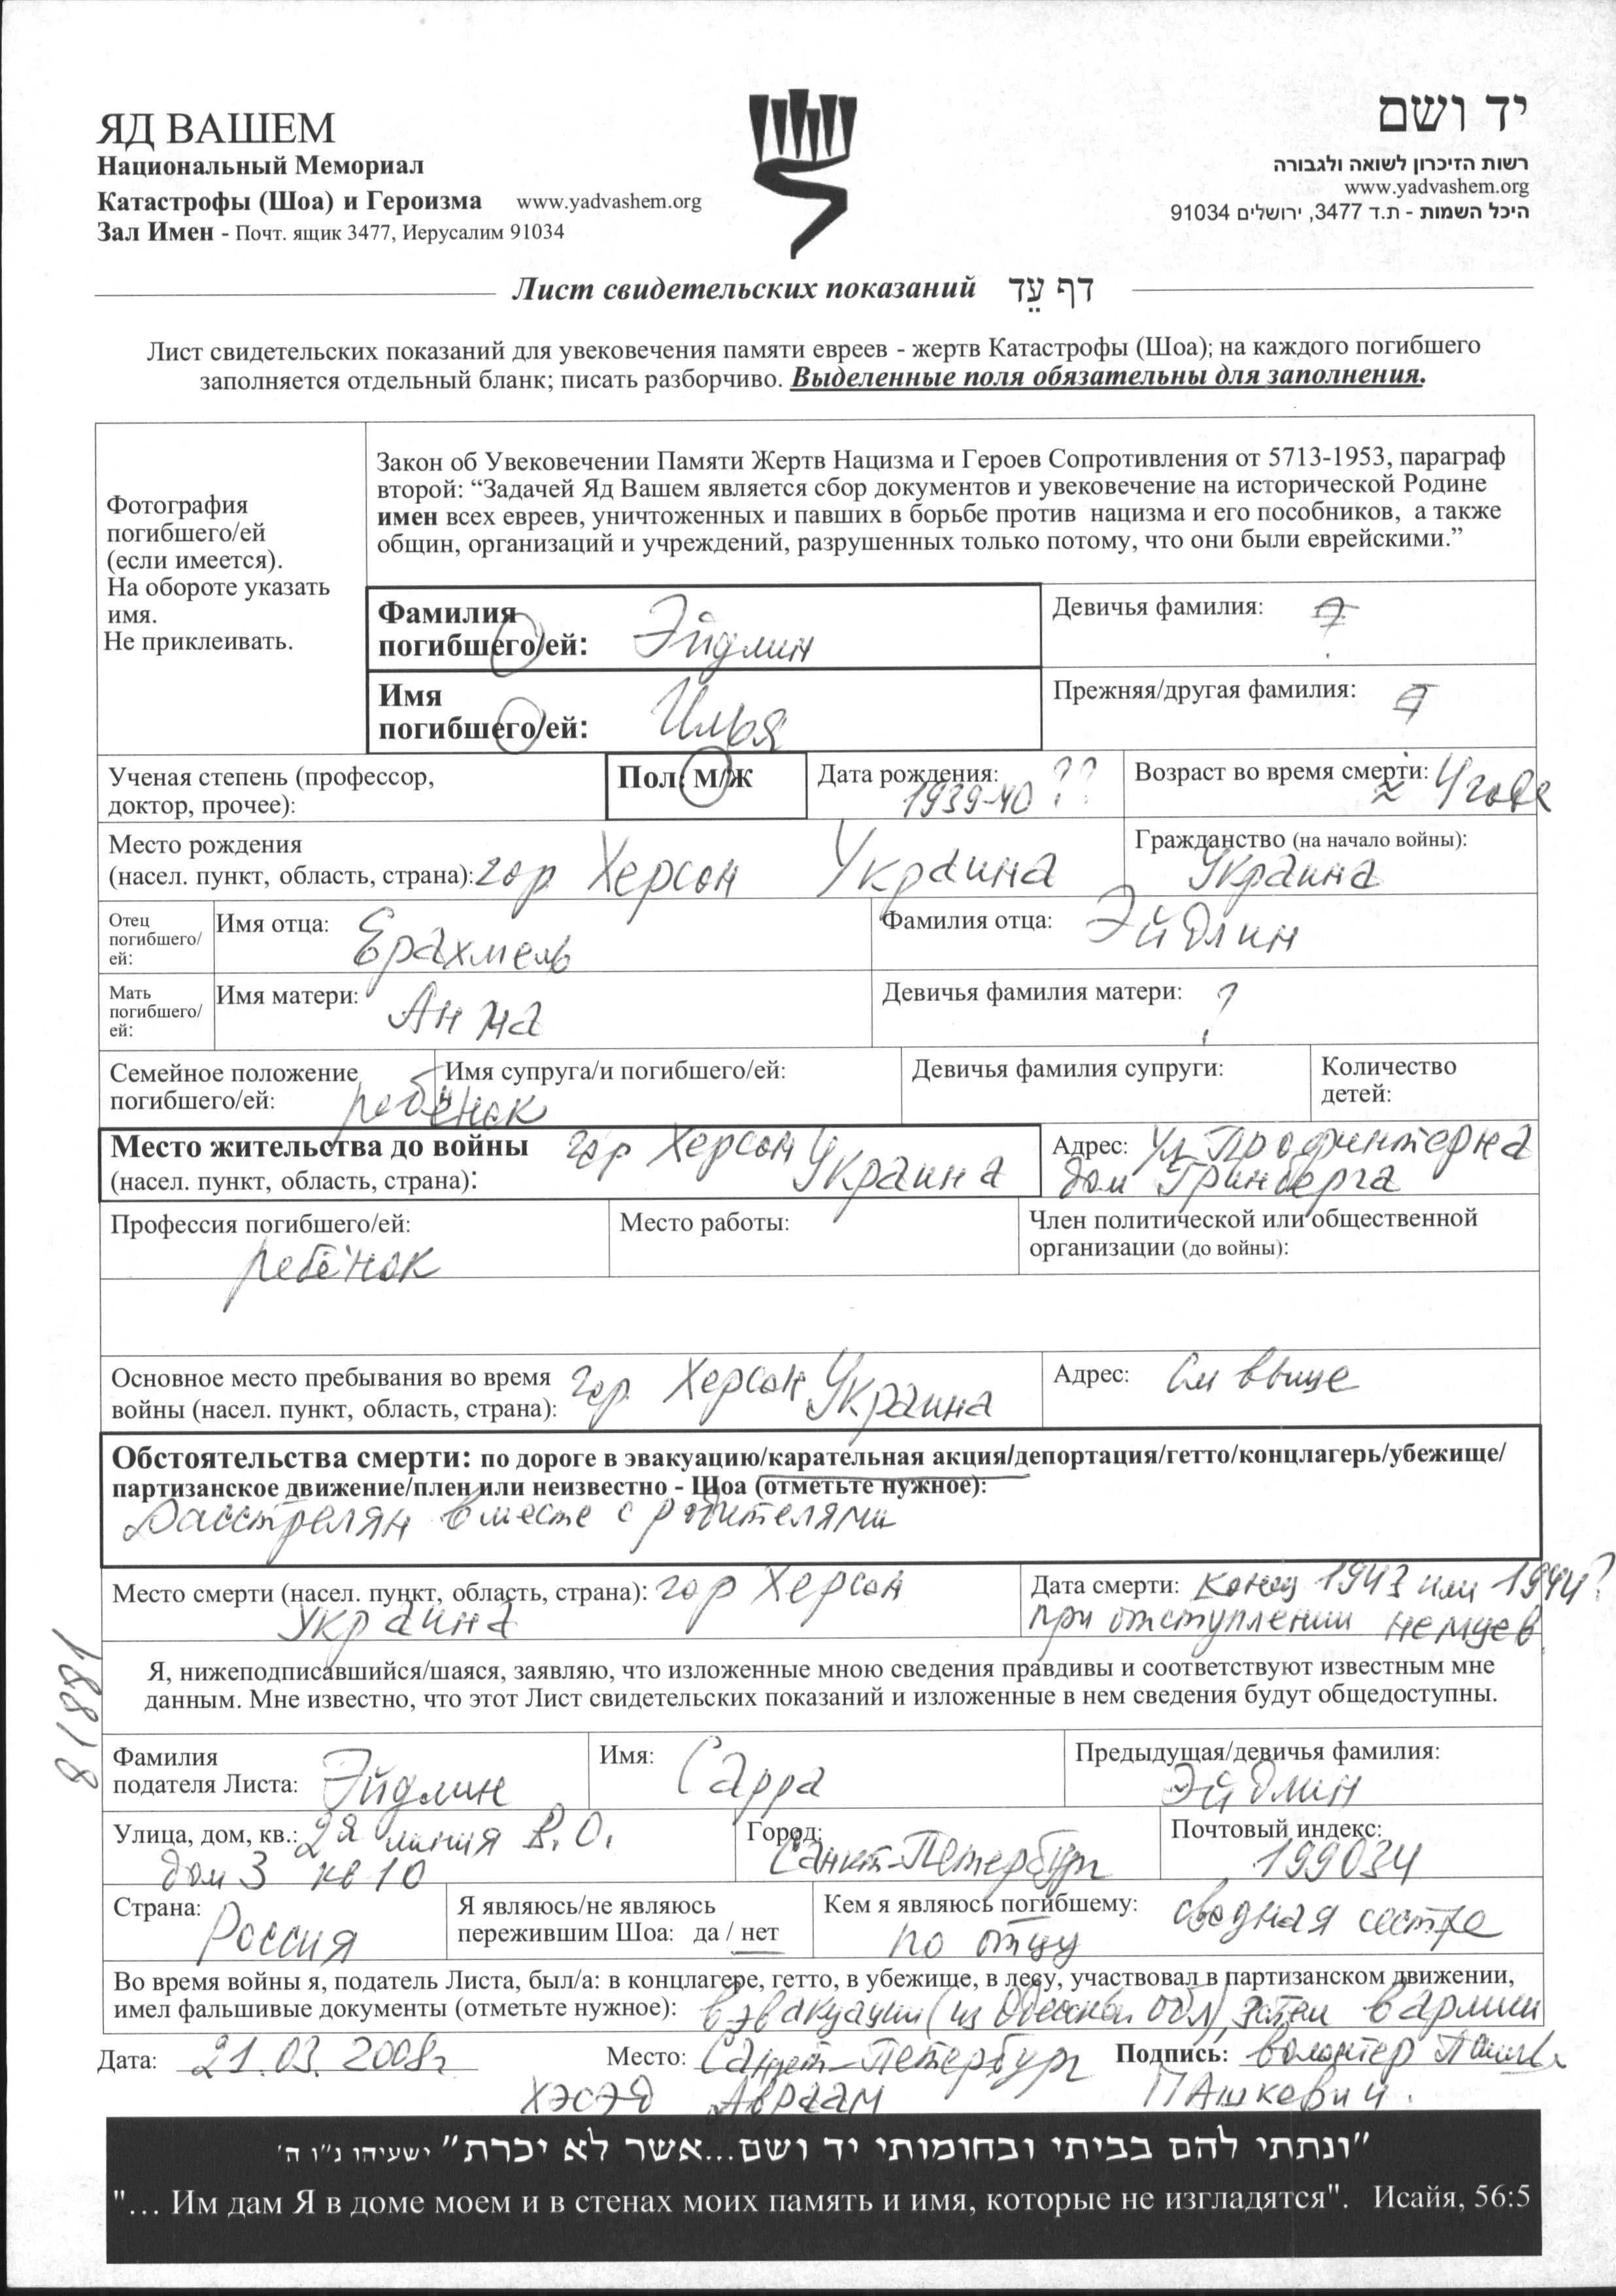 ЯД ВАШЕМ
Национальный Мемориал
Катастрофы (Шоа) и Героизма www.yadvashem.org
Зал Имен - Почт. ящик 3477, Иерусалим 91034
יד ושם
רשות הזיכרון לשואה ולגבורה
www.yadvashem.org
היכל השמות - ת.ד 3477, ירושלים 91034
Лист свидетельских показаний דף עֵד
Лист свидетельских показаний для увековечения памяти евреев - жертв Катастрофы (Шоа); на каждого погибшего
заполняется отдельный бланк; писать разборчиво. Выделенные поля обязательны для заполнения.
Фотография
погибшего/ей
(если имеется).
На обороте указать
имя.
Не приклеивать.
Закон об Увековечении Памяти Жертв Нацизма и Героев Сопротивления от 5713-1953, параграф
второй: “Задачей Яд Вашем является сбор документов и увековечение на исторической Родине
имен всех евреев, уничтоженных и павших в борьбе против нацизма и его пособников, а также
общин, организаций и учреждений, разрушенных только потому, что они были еврейскими.”
Фамилия
погибшего/ей: Эйдлин
Девичья фамилия:
Имя
погибшего/ей: Илья
Прежняя/другая фамилия:
Ученая степень (профессор,
доктор, прочее):
Пол: М/Ж
Дата рождения:
1939-40 ??
Возраст во время смерти:
≈ 4 года
Место рождения
(насел. пункт, область, страна): гор Херсон Украина
Гражданство (на начало войны):
Украина
Отец
погибшего/
ей:
Имя отца: Ерахмель
Фамилия отца: Эйдлин
Мать
погибшего/
ей:
Имя матери: Анна
Девичья фамилия матери: ?
Семейное положение
погибшего/ей: ребёнок
Имя супруга/и погибшего/ей:
Девичья фамилия супруги:
Количество
детей:
Место жительства до войны
(насел. пункт, область, страна): гор Херсон Украина
Адрес: ул Профинтерна
дом Гринберга
Профессия погибшего/ей:
ребёнок
Место работы:
Член политической или общественной
организации (до войны):
Основное место пребывания во время
войны (насел. пункт, область, страна): гор Херсон Украина
Адрес: См выше
Обстоятельства смерти: по дороге в эвакуацию/карательная акция/депортация/гетто/концлагерь/убежище/
партизанское движение/плен или неизвестно - Шоа (отметьте нужное):
Расстрелян вместе с родителями
Место смерти (насел. пункт, область, страна): гор Херсон
Украина
Дата смерти: конец 1943 или 1944?
при отступлении немцев
81881
Я, нижеподписавшийся/шаяся, заявляю, что изложенные мною сведения правдивы и соответствуют известным мне
данным. Мне известно, что этот Лист свидетельских показаний и изложенные в нем сведения будут общедоступны.
Фамилия
подателя Листа: Эйдлин
Имя: Сарра
Предыдущая/девичья фамилия:
Эйдлин
Улица, дом, кв.: 2я линия В.О.
дом 3 кв 10
Город:
Санкт-Петербург
Почтовый индекс:
199034
Страна:
Россия
Я являюсь/не являюсь
пережившим Шоа: да / нет
Кем я являюсь погибшему: сводная сестра
по отцу
Во время войны я, податель Листа, был/а: в концлагере, гетто, в убежище, в лесу, участвовал в партизанском движении,
имел фальшивые документы (отметьте нужное): в эвакуации (из Одесской обл), затем в армии
Дата: 21.03.2008г
Место: Санкт-Петербург
Подпись: волонтер
ХЭСЭД Авраам Пашкевич.
"ונתתי להם בביתי ובחומותי יד ושם...אשר לא יכרת" ישעיהו נ"ו ה'
"... Им дам Я в доме моем и в стенах моих память и имя, которые не изгладятся". Исайя, 56:5